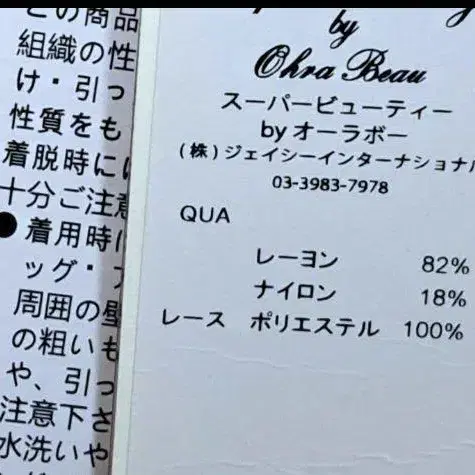 この商品
組織の性
け・引っ
性質をも
着脱時に
十分ご注意
●着用時
ッグ・
周囲の壁
の粗いも
や、引っ
注意下さ
水洗いや
by
Ohra Beau
スーパービューティー
by オーラボー
(株)ジェイシーインターナショナル
03-3983-7978
QUA
レーヨン 82%
ナイロン 18%
レース ポリエステル 100%